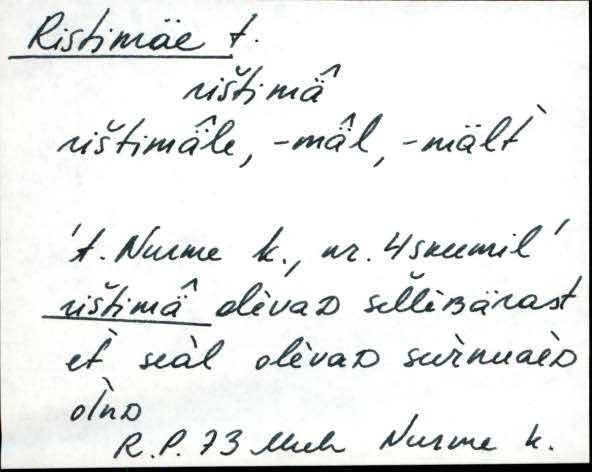 Ristimäe t.
rištimä̂
rištimä̂le, -mä̂l, -mält̀
't. Nurme k., nr. 4 skeemil'
rištimä̂ olèvaᴅ selleʙärast
et̀ seàl olèvaᴅ surnuaèᴅ
olnᴅ
R.P. 73 Muh Nurme k.